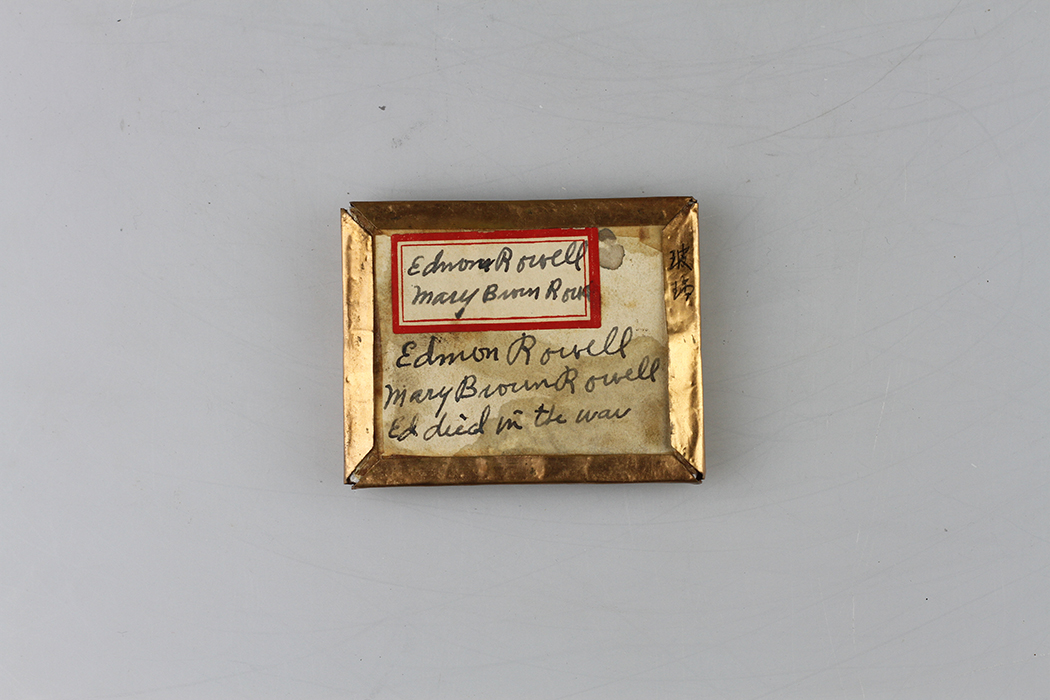 Edmon Rowell
Mary Brown Row
Edmon Rowell
Mary Brown Rowell
Ed died in the war
玻
璃